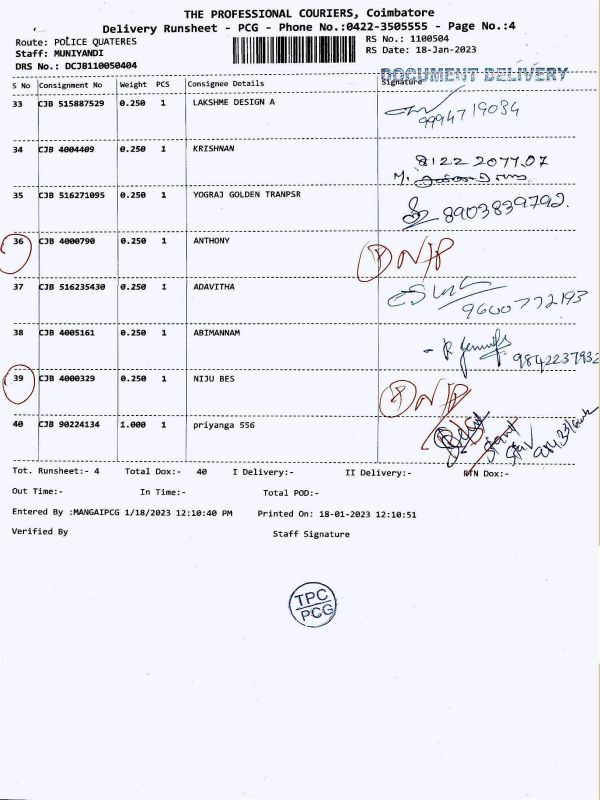 THE PROFESSIONAL COURIERS, Coimbatore
Delivery Runsheet - PCG - Phone No.:0422-3505555 - Page No.:4
Route: POLICE QUATERES
RS No.: 1100504
Staff: MUNIYANDI
RS Date: 18-Jan-2023
DRS No.: DCJB110050404
DOCUMENT DELIVERY
S No Consignment No Weight PCS Consignee Details Signature
33 CJB 515887529 0.250 1 LAKSHME DESIGN A
9994719034
34 CJB 4004409 0.250 1 KRISHNAN
8122 2077.07
M.
35 CJB 516271095 0.250 1 YOGRAJ GOLDEN TRANPSR
8903839792.
36 CJB 4000790 0.250 1 ANTHONY
37 CJB 516235430 0.250 1 ADAVITHA
9600772193
38 CJB 4005161 0.250 1 ABIMANNAM
9842237932
39 CJB 4000329 0.250 1 NIJU BES
40 CJB 90224134 1.000 1 priyanga 556
Tot. Runsheet:- 4 Total Dox:- 40 I Delivery:- II Delivery:- RTN Dox:-
Out Time:- In Time:- Total POD:-
Entered By :MANGAIPCG 1/18/2023 12:10:40 PM Printed On: 18-01-2023 12:10:51
Verified By Staff Signature
TPC
PCG